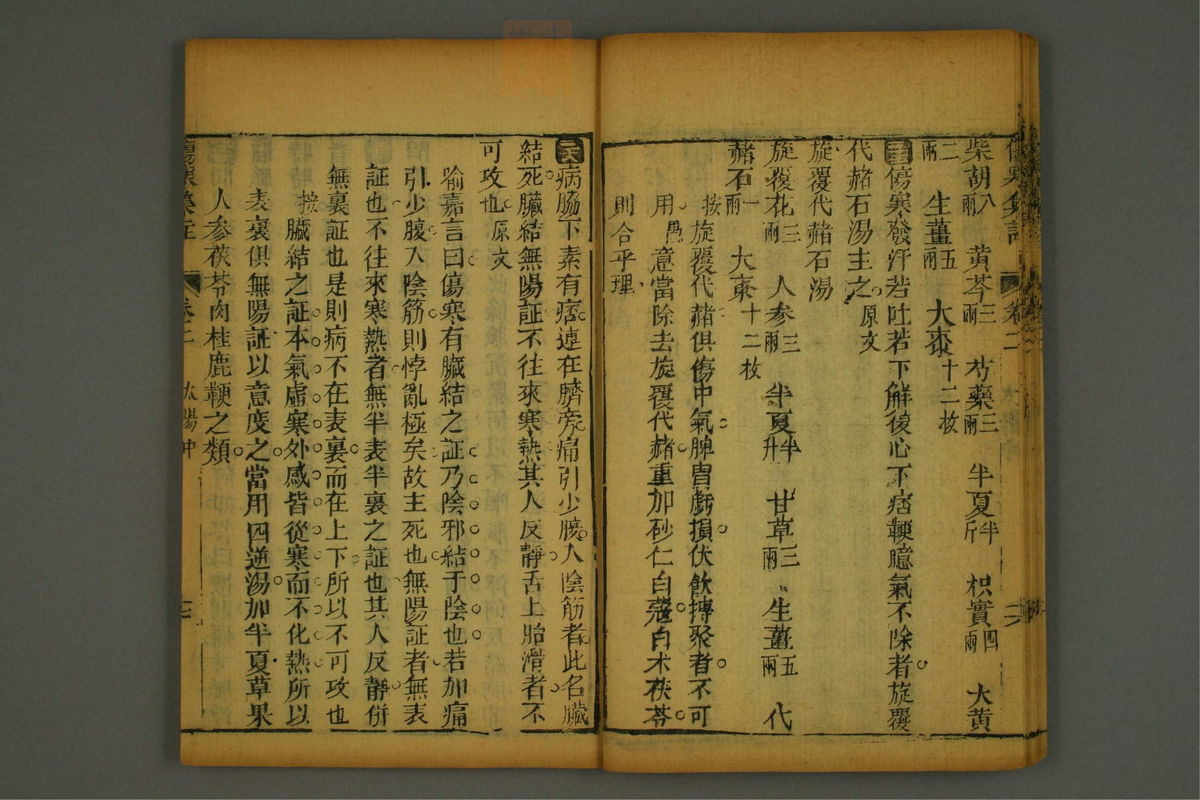 傷寒集註 卷二
柴胡八兩 黃芩三兩 芍藥三兩 半夏半斤 枳實四兩 大黃
二兩 生薑五兩 大棗十二枚
傷寒發汗若吐若下解後心下痞鞕臆氣不除者旋覆
代赭石湯主之原文
旋覆代赭石湯
旋覆花三兩 人參三兩 半夏半升 甘草三兩 生薑五兩 代
赭石一兩 大棗十二枚
按旋覆代赭俱傷中氣脾胃虧損伏飲摶聚者不可
用愚意當除去旋覆代赭重加砂仁白蔻白朮茯苓
則合乎理
病脇下素有痞連在臍旁痛引少腹入陰筋者此名臟
結死臟結無陽証不往來寒熱其人反靜舌上胎滑者不
可攻也原文
喻嘉言曰傷寒有臟結之証乃陰邪結于陰也若加痛
引少腹入陰筋則悖亂極矣故主死也無陽証者無表
証也不往來寒熱者無半表半裏之証也其人反靜併
無裏証也是則病不在表裏而在上下所以不可攻也
按臟結之証本氣虛寒外感皆從寒而不化熱所以
表裏俱無陽証以意度之當用四逆湯加半夏草果
人參茯苓肉桂鹿鞕之類
傷寒集註 卷二 太陽中